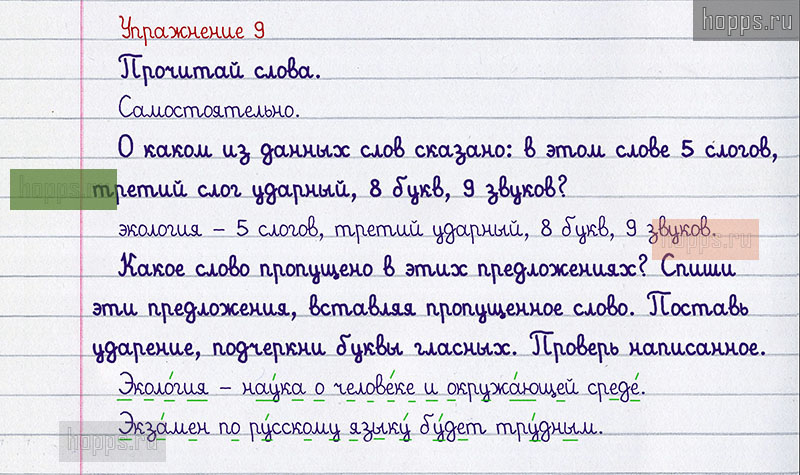 hopps.ru
Упражнение 9
Прочитай слова.
Самостоятельно.
О каком из данных слов сказано: в этом слове 5 слогов,
hopps.ru
третий слог ударный, 8 букв, 9 звуков?
экология – 5 слогов, третий ударный, 8 букв, 9 звуков.
hopps.ru
Какое слово пропущено в этих предложениях? Спиши
эти предложения, вставляя пропущенное слово. Поставь
ударение, подчеркни буквы гласных. Проверь написанное.
Эколо́гия – нау́ка о челове́ке и окружа́ющей среде́.
Экза́мен по ру́сскому языку́ бу́дет тру́дным.
hopps.ru